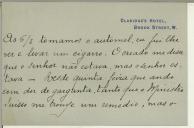 CLARIDGE'S HOTEL,
BROOK STREET, W.
As 6½ tomamos o automel, eu fui lhe
ver e levar um cigarro. O creado me disse
que o senhor não estava, mas o senhor es-
tava — Desde quinta feira que ando
com dor de garganta, tanto que o Ministro
quiz me trouxe um remedio, mas o